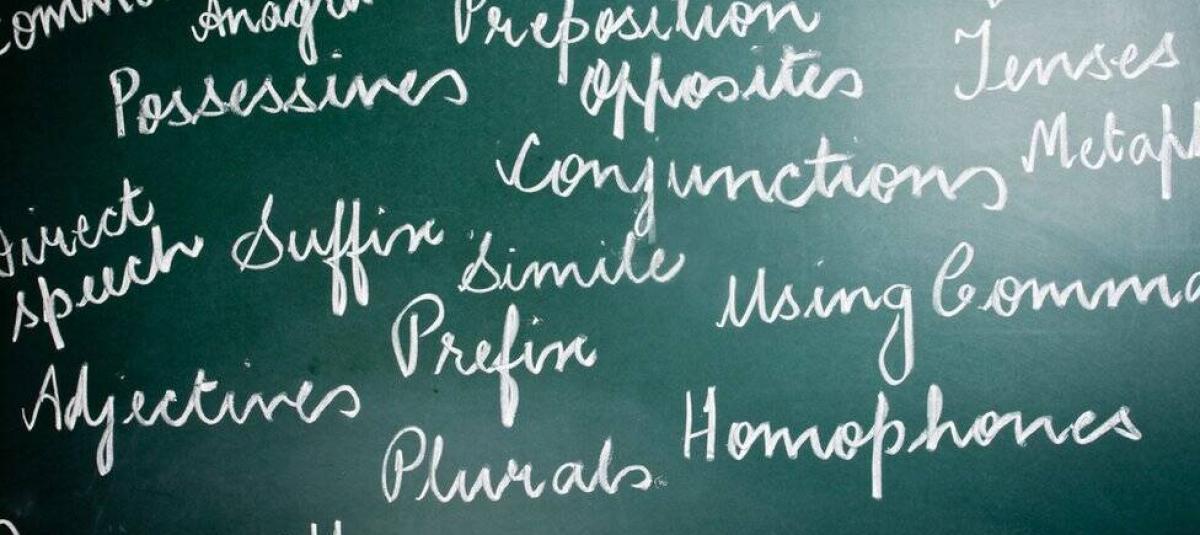 Preposition
Possessives
opposites
Tenses
Conjunctions
Direct
speech
Suffix
Simile
Using Comma
Prefix
Adjectives
Homophones
Plurals